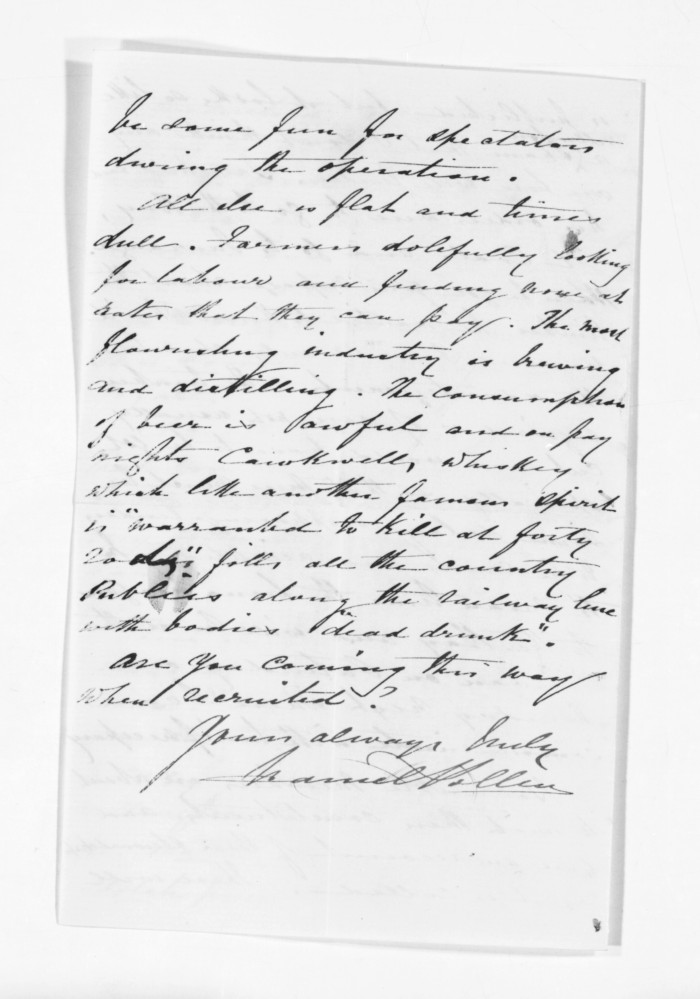 be some fun for spectators
during the operation.
All else is flat and times
dull. Farmers dolefully looking
for labour and finding none at
rates that they can pay. The most
flourishing industry is brewing
and distilling. The consumption
of beer is awful and on pay
nights Cawkwell's whiskey
which like another famous spirit
is "warranted to kill at forty
rods" fills all the country
Publics along the railway line
with bodies "dead drunk".
Are you coming this way
when recruited?
Yours always truly
Daniel Pollen